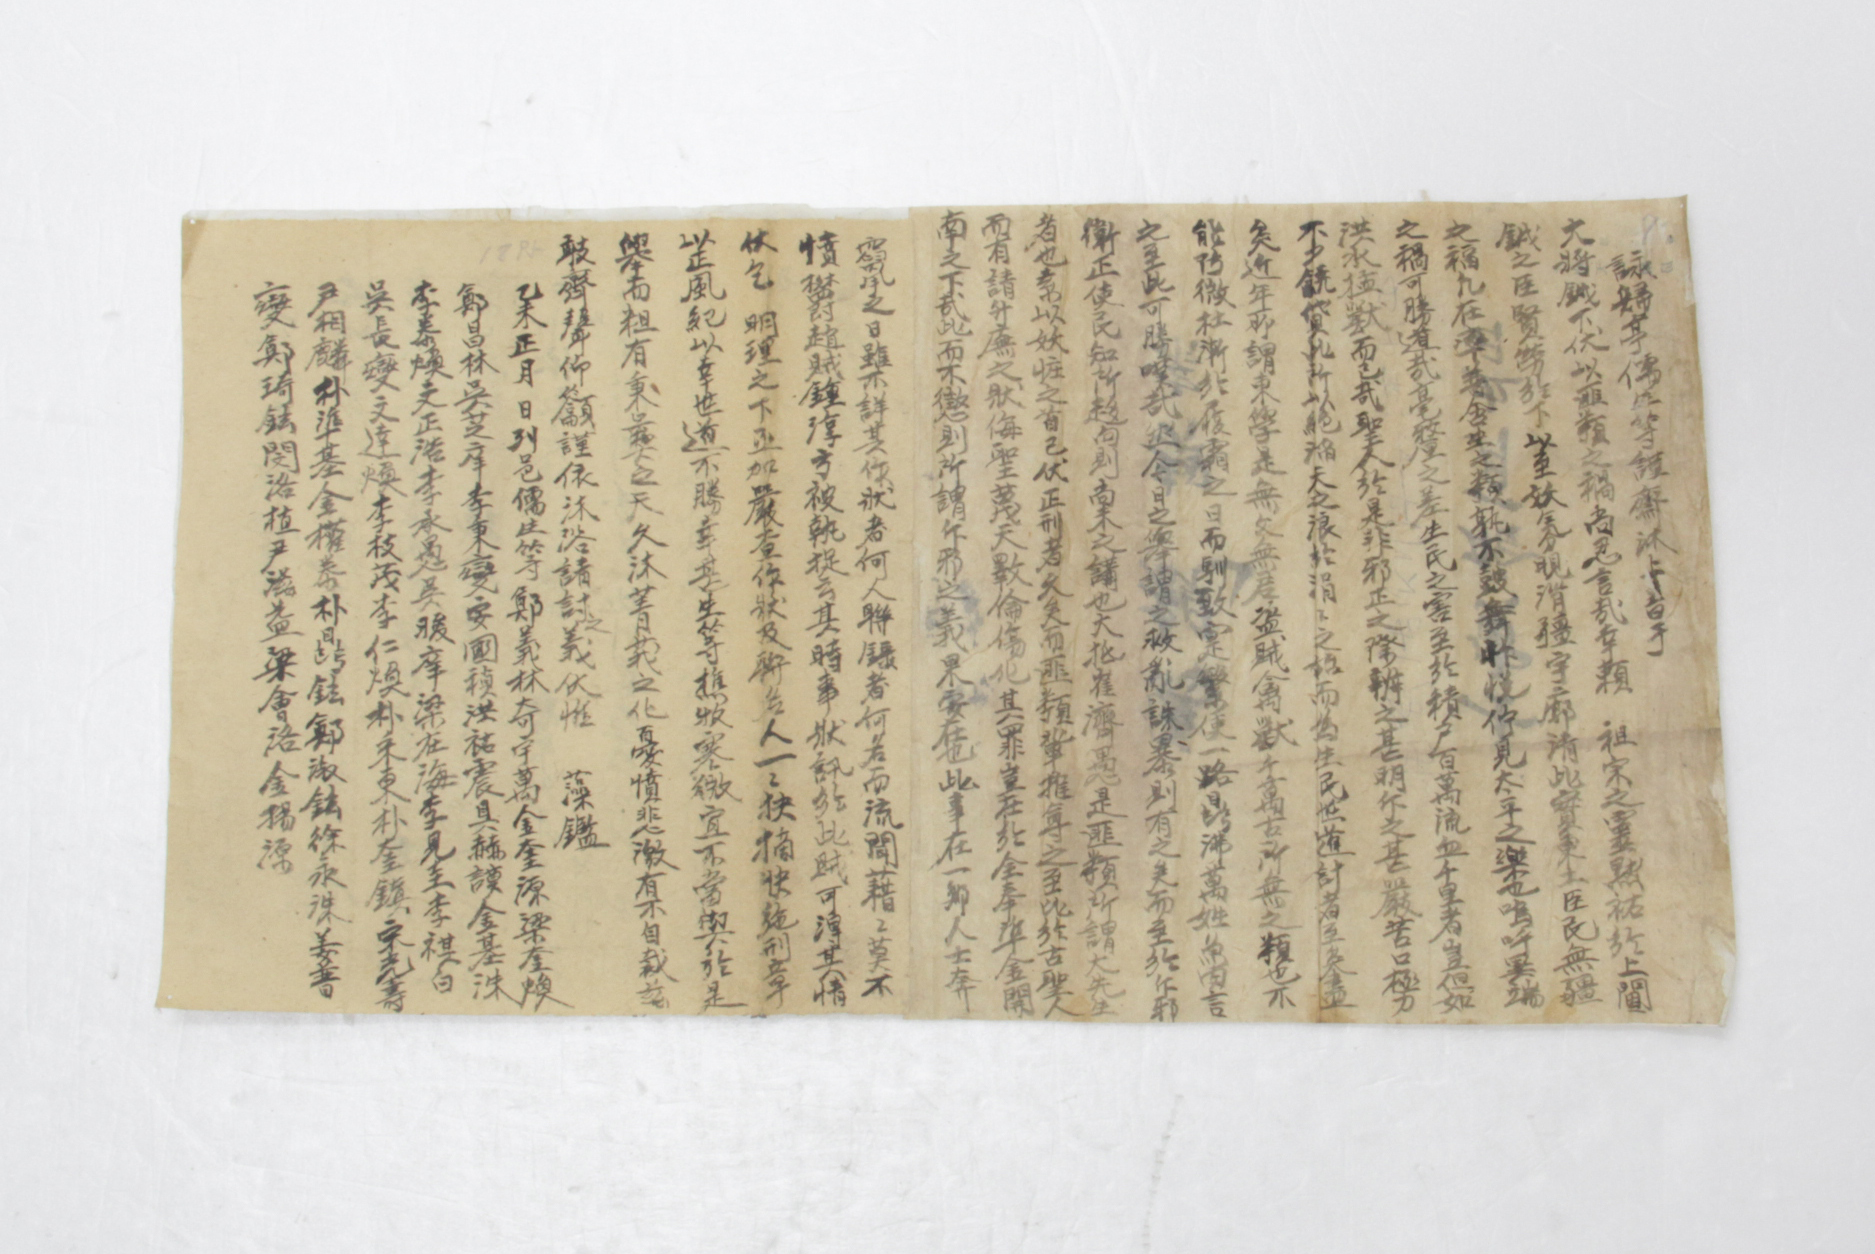 詠歸亭儒生等謹齋沐上書于
大將鉞下伏以匪類之禍尚忍言哉幸賴 祖宗之靈默祐於上閫
鉞之臣賢勞於下以至妖氛現消疆宇廓清此實東土臣民無疆
之福凡在含生之類孰不鼓舞忭悅仰見太平之樂也嗚呼異端
之禍可勝道哉毫釐之差生民之害至於積尸百萬流血千里者豈但如
洪水猛獸而已哉聖人於是非邪正之際辨之甚明斥之甚嚴苦口極力
不少饒貸此所以絶滔天之浪於涓〻之始而為生民世道計者至矣盡
矣近年所謂東學是無父無君盜賊禽獸千萬古所無之類也不
能防微杜漸於履霜之日而馴致寔繁使一路鼎沸萬姓魚肉言
之至此可勝嘆哉迨今日之擧謂之救亂誅暴則有之矣而至於斥邪
衛正使民知所趍向則尚未之講也大抵崔濟愚是匪類所謂大先生
者也素以妖怪之首已伏正刑者久矣而匪類輩推尊之至比於古聖人
而有請升廡之狀侮聖蔑天斁倫傷化其罪豈在於全奉準金開
南之下哉此而不懲則所謂斥邪之義果安在也此事在一鄕人士奔
竄之日雖不詳其作狀者何人聯錄者何名而流聞藉〻莫不
憤欝趙賊鍾淳方被執捉云其時事狀訊於此賊可得其情
伏乞 明理之下亟加嚴查作狀及聯名人一〻抉摘快施刑章
以正風紀以幸世道不勝幸甚生等樵牧寒微宜不當與於是
擧而粗有秉彛之天久沐菁莪之化憂憤悲激有不自裁玆
敢齊聲仰籲謹依沐浴請討之義伏惟 藻鑑
乙未正月 日列邑儒生等鄭義林奇宇萬金奎源梁奎煥
鄭昌林吳芝庠李東燮安國禎洪祐震具赫謨金基洙
李泰煥文正浩李承愚吳駿庠梁在海李見圭李祺白
吳長燮文達煥李枝茂李仁煥朴來東朴奎鎭宋光壽
尹相麟朴準基金權泰朴鼎鉉鄭淑鉉徐永洙姜普
燮鄭琦鉉閔洛植尹滋益梁會洛金楊源